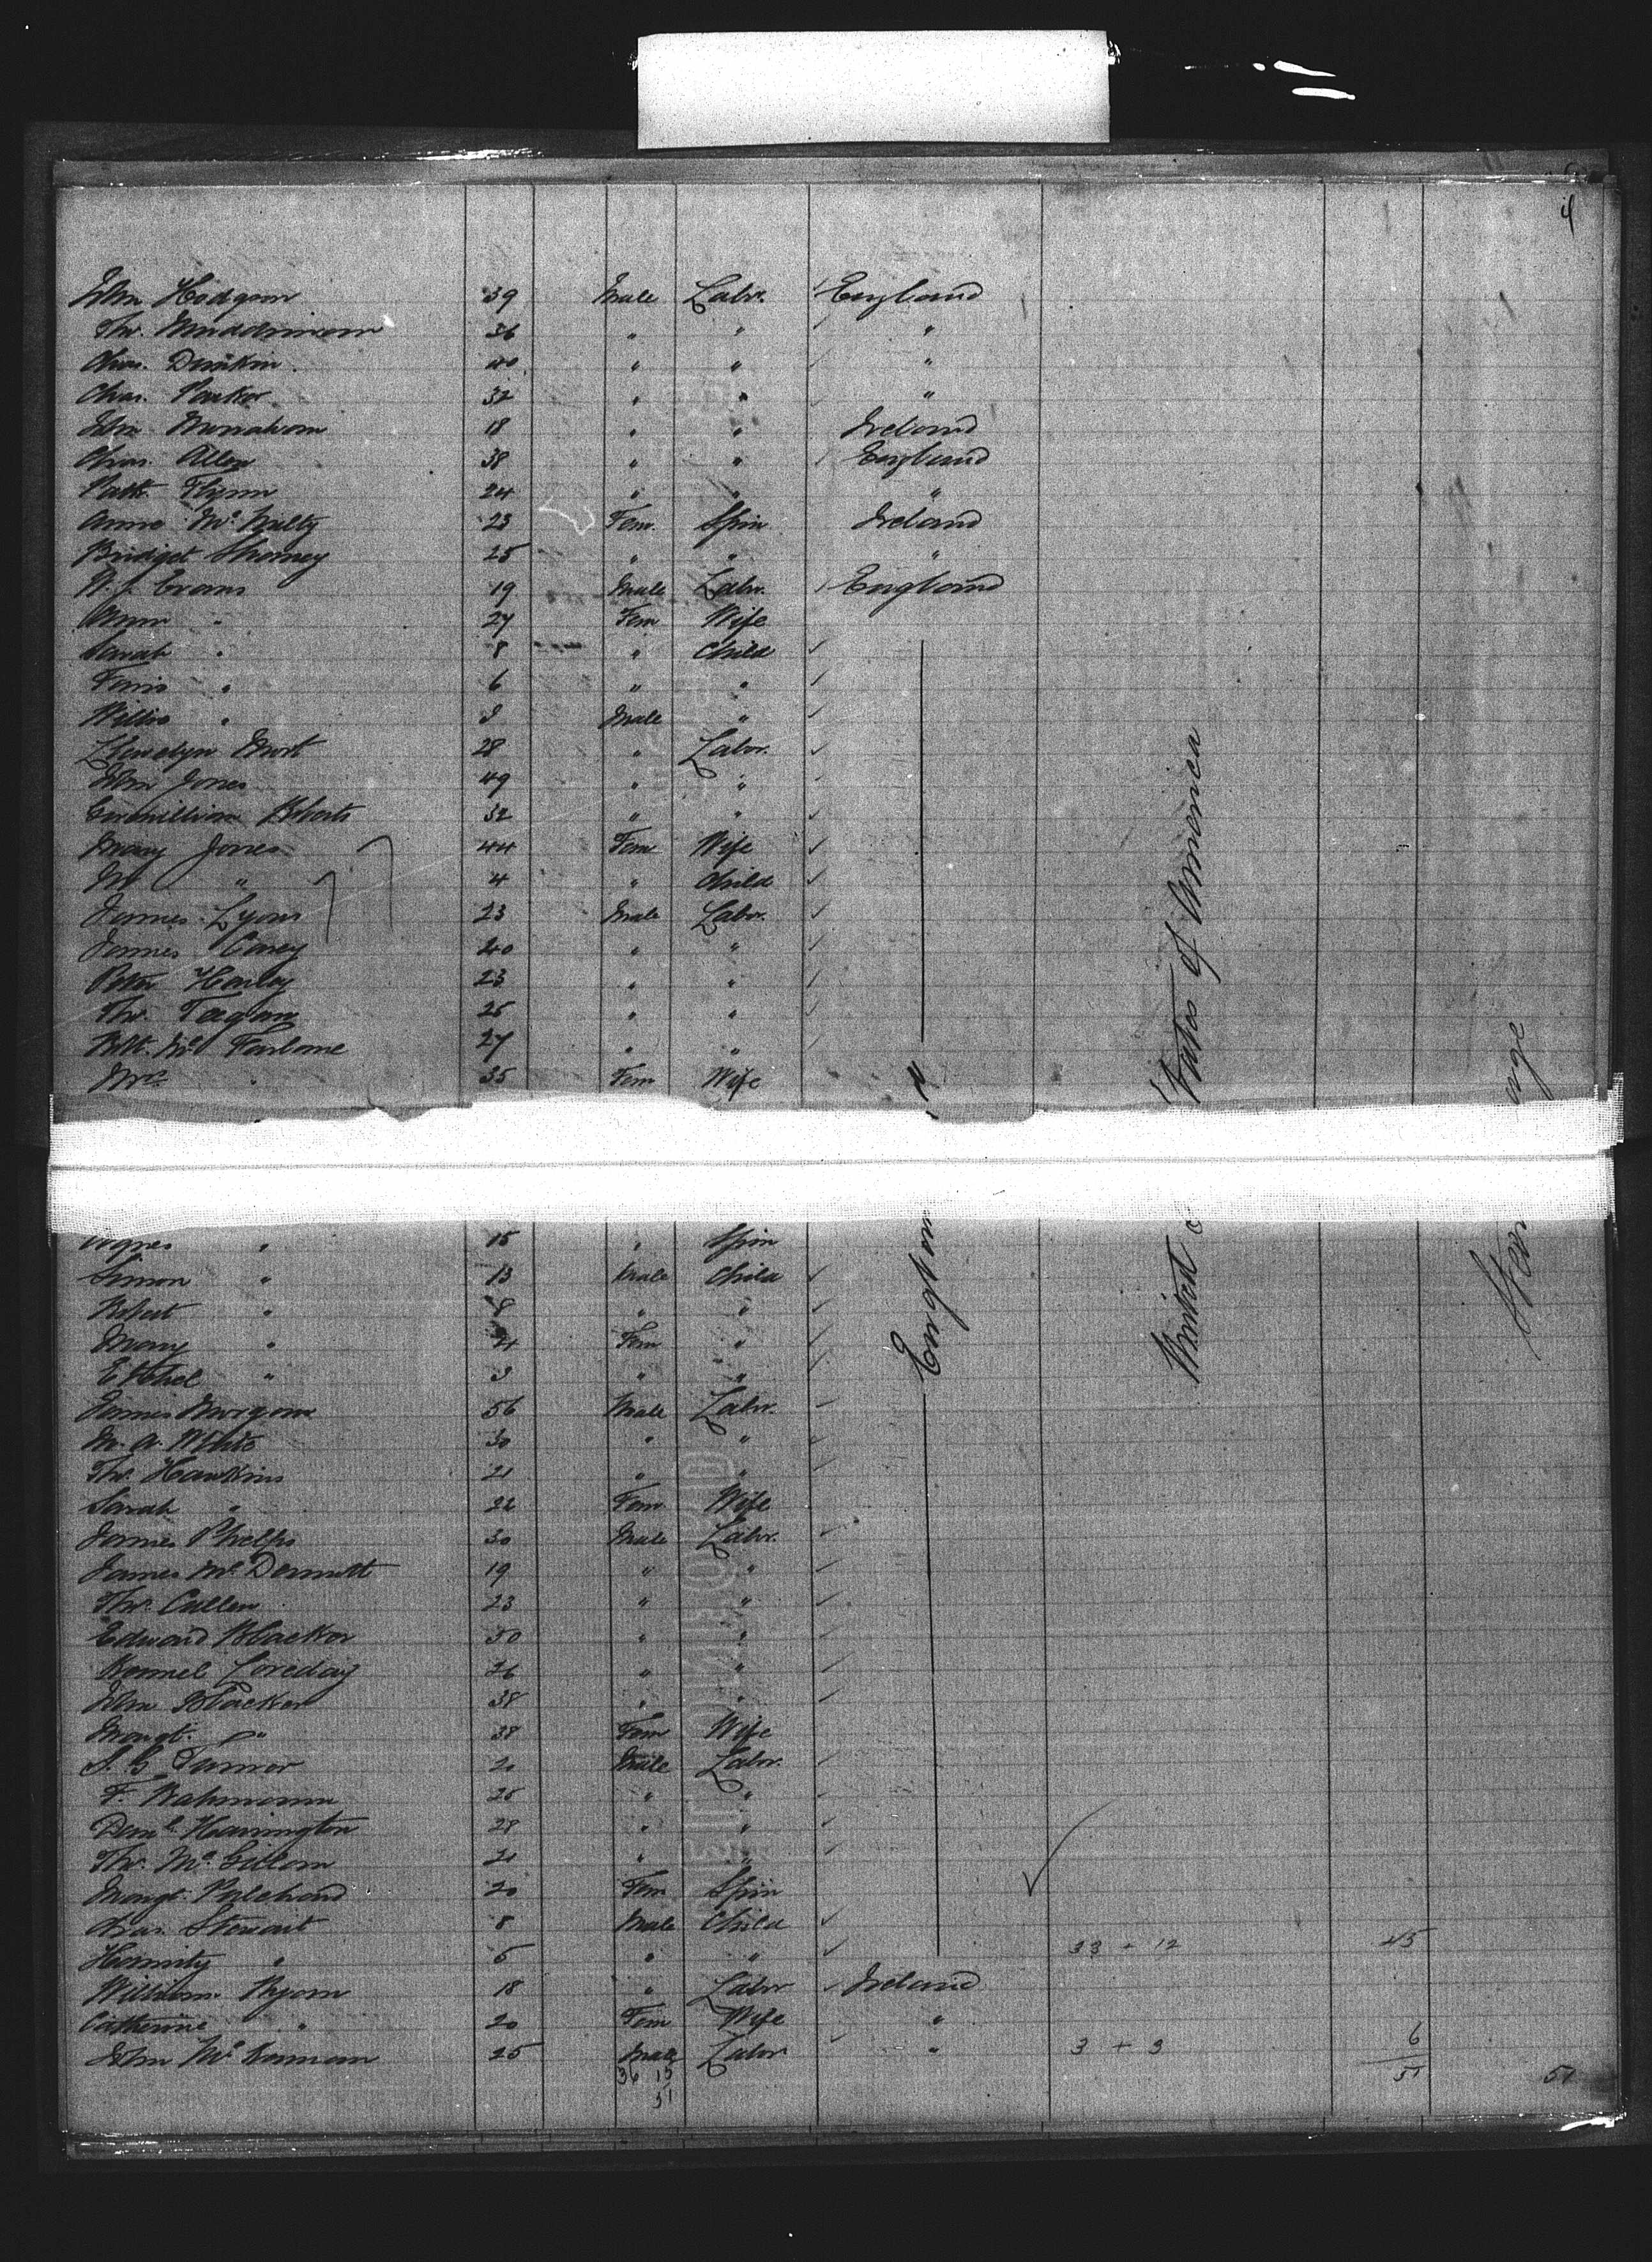 4
John Hodgson 39 Male Labr. England
Thos. Muddimann 36 " " "
Chas. Dunkin 40 " " "
Chas. Parker 32 " " "
John Monahan 18 " " Ireland
Chas. Allen 38 " " England
Patk. Flynn 24 " " "
Anne McNulty 23 Fem. Spin Ireland
Bridget 25 " " "
W. J. Evans 19 Male Labr. England
Ann " 27 Fem Wife
Sarah " 8 " Child
" 6 " "
Willie " 3 Male "
Llewelyn 28 " Labr.
John Jones 49 " "
Roberts 32 " "
Mary Jones 44 Fem Wife
M " 4 " Child
James Lyons 23 Male Labr.
James Carey 40 " "
Peter Harley 23 " "
Thos. Teagan 25 " "
Robt. McFarlane 27 " "
Mrs. " 35 Fem Wife
Agnes " 15 " Spin
Simon " 13 Male Child
Robert " 8 " "
Mary " 4 Fem "
Ethel " 3 " "
James 56 Male Labr.
M. A. White 30 " "
Thos. Hawkins 21 " "
Sarah " 22 Fem Wife
James Phelps 30 Male Labr.
James McDermott 19 " "
Thos. Cullen 23 " "
Edward Blacker 50 " "
Loveday 26 " "
John Blacker 38 " "
Margt. " 38 Fem Wife
S. G. Turner 20 Male Labr.
F. 25 " "
Danl. Harrington 28 " "
Thos. 21 " "
Margt. 20 Fem Spin
Chas. Stewart 8 Male Child
" 5 " " 33 + 12 45
William Ryan 18 " Labr Ireland
Catherine " 20 Fem Wife "
John McKernan 25 Male Labr " 3 + 3 6
36 15 51 51
51
England
United States of America
Steerage